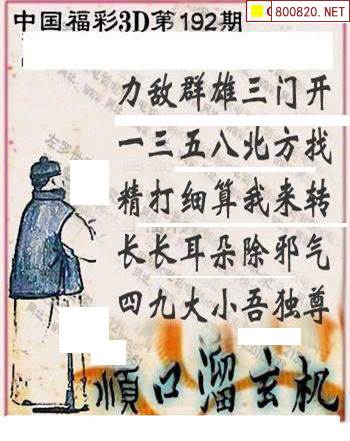 800820.NET
中国福彩3D第192期
力敌群雄三门开
一三五八北方找
精打细算我来转
长长耳朵除邪气
四九大小吾独尊
順口溜玄机